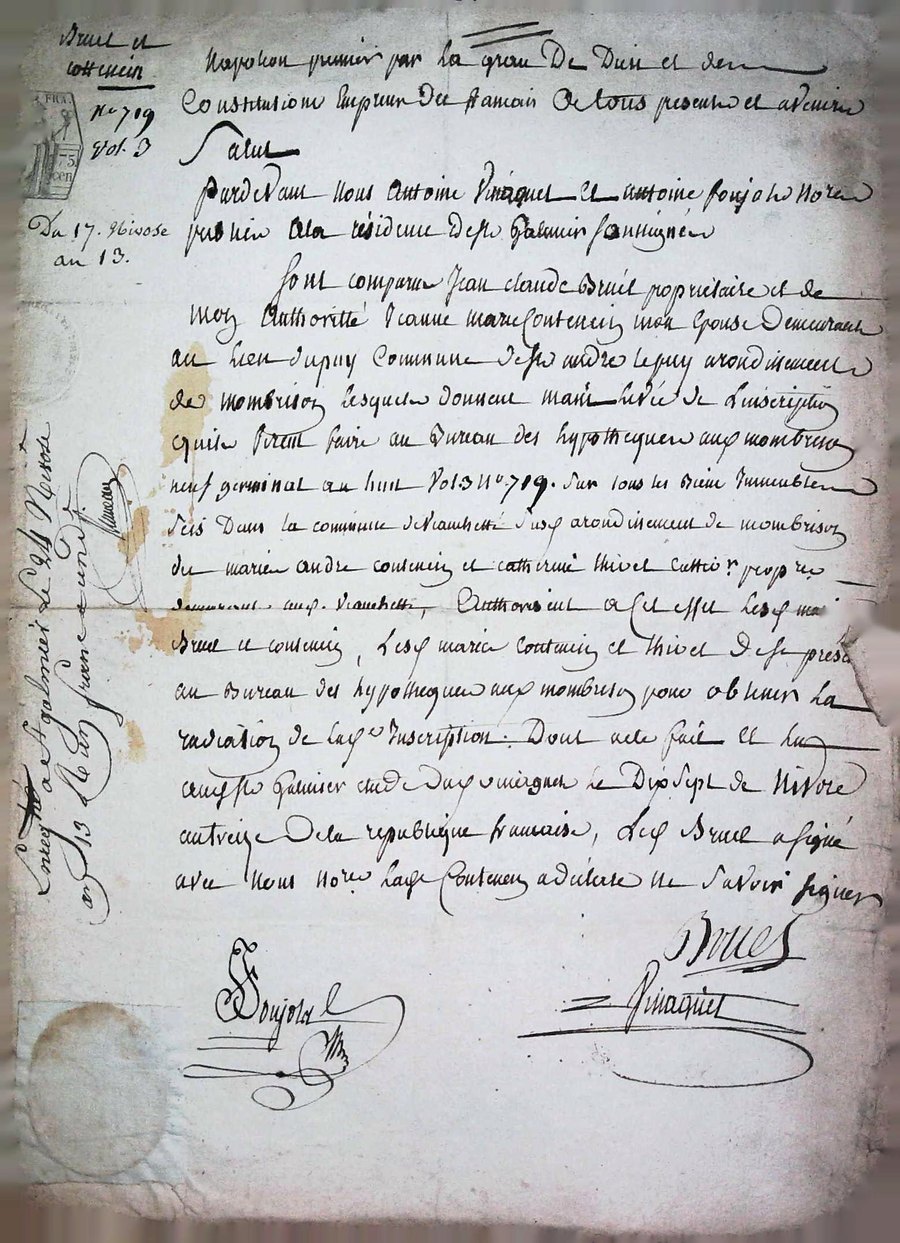 Bruel et
Cottencin
No 719
Vol. 3
FRA.
75
cen
Du 17. Nivose
an 13.
Napoleon premier par La grace De Dieu et des
Constitutions Empreur Des francais A tous presents et avenir
Salut
pardevant nous Antoine Pinaguet et antoine poujol Nores
publics a la résidence De St Galmier soussignés
sont comparus Jean claude Bruel propriétaire et de
moy Authorittée Jeanne marie Contencin mon Epouse Demeurants
au Lieu dupuy Commune de St andre Le puy arondissement
de mombrison Lesquels donnent main Levée de L'inscription
quils firent faire au Bureau des hypotheques aud mombrison
neuf germinal an huit Vol 3 No 719. Sur tous les Biens Immeubles
scis Dans la commune de Veauchette susd arondissement de mombrison
des maries andre contencin et catherine thivet propres
demeurants aud. Veauchette, Authorisent a Cet effet Lesd
Bruel et contencin, Lesd maries Contencin et thivet De se
au Bureau des hypotheques aud mombrison pour obtenir La
radiation de Lad Inscription. Dont acte fait et Lu
aud St Galmier etude Dud Pinaguet Le Dix Sept de Nivose
an treize De la republique francaise, Led Bruel a signé
avec Nous Nores Lad Contencin a déclaré Ne Savoir signer
Bruel
Poujol
Pinaguet
Enregtré a St galmier Le 24 Nivose
an 13 Reçu un franc